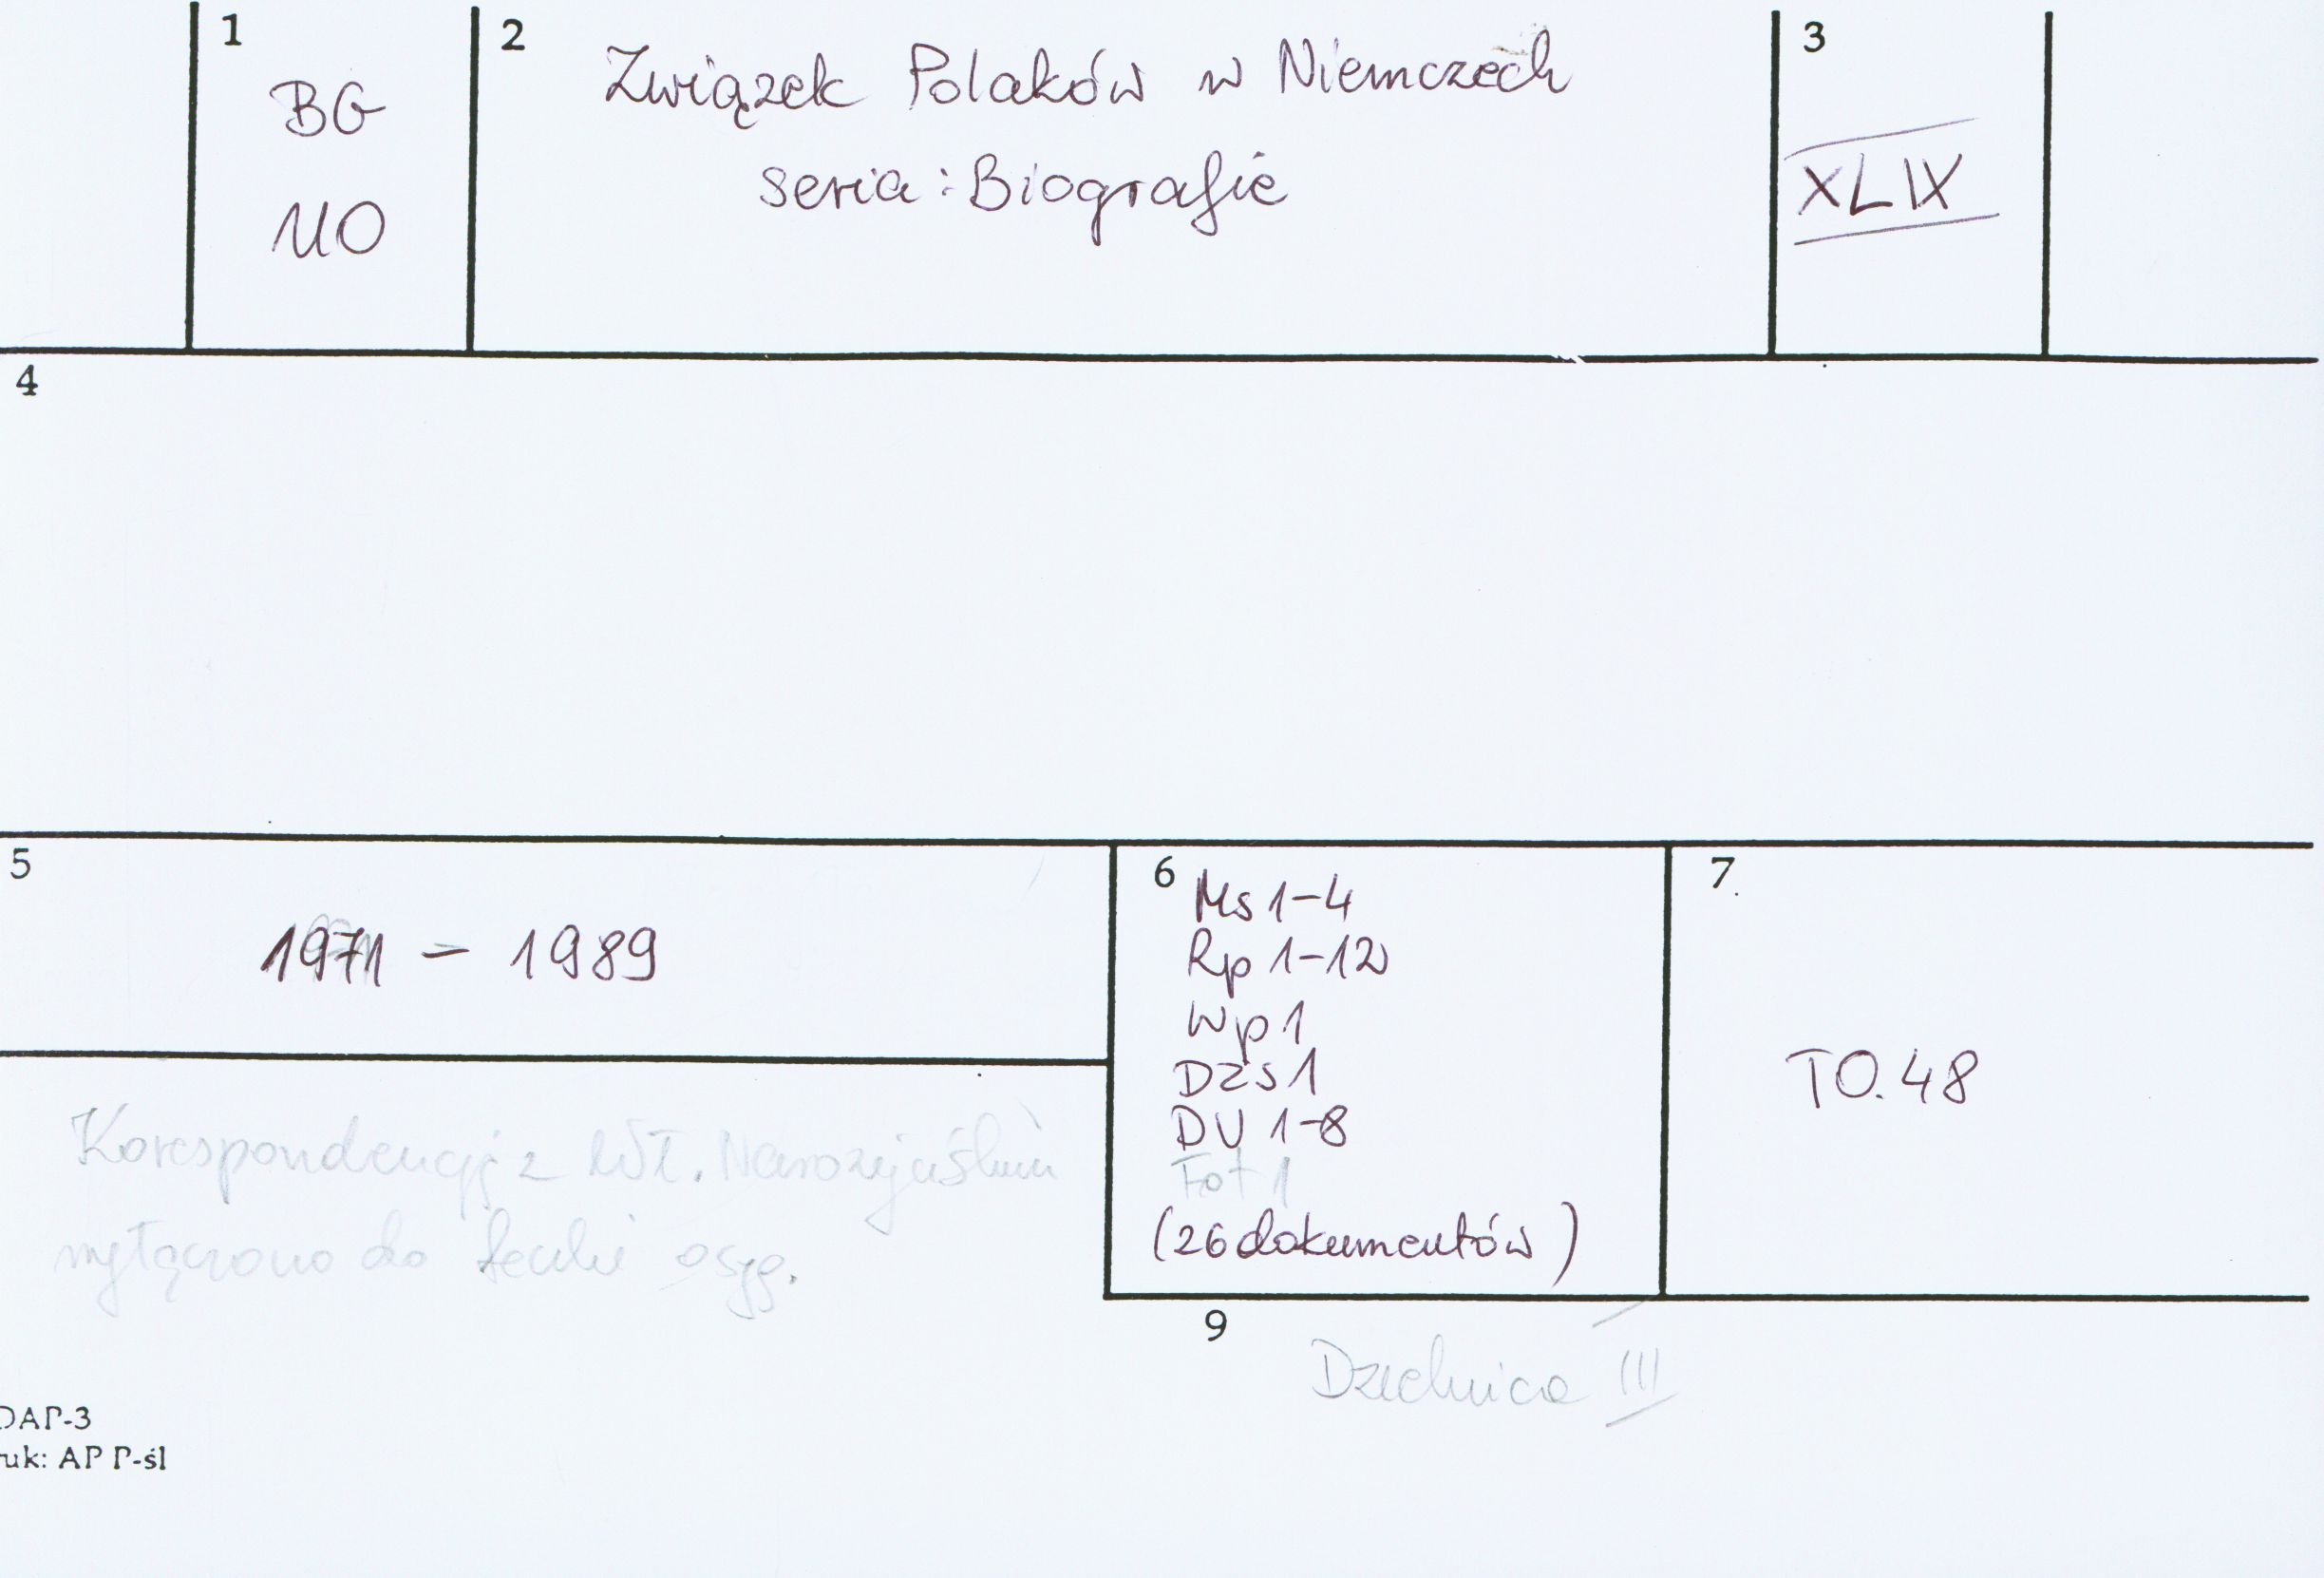 1
BG
MO
2
Związek Polaków w Niemczech
seria: Biografie
3
XLIX
4
5
1971 - 1989
6
Ms 1-4
Rp 1-12
Wp 1
Dzs 1
DU 1-8
Fot 1
(26 dokumentów)
7
TO.48
Korespondencję z Wł.
wyłączono do teczki
9
III
DAP-3
uk: AP P-śl